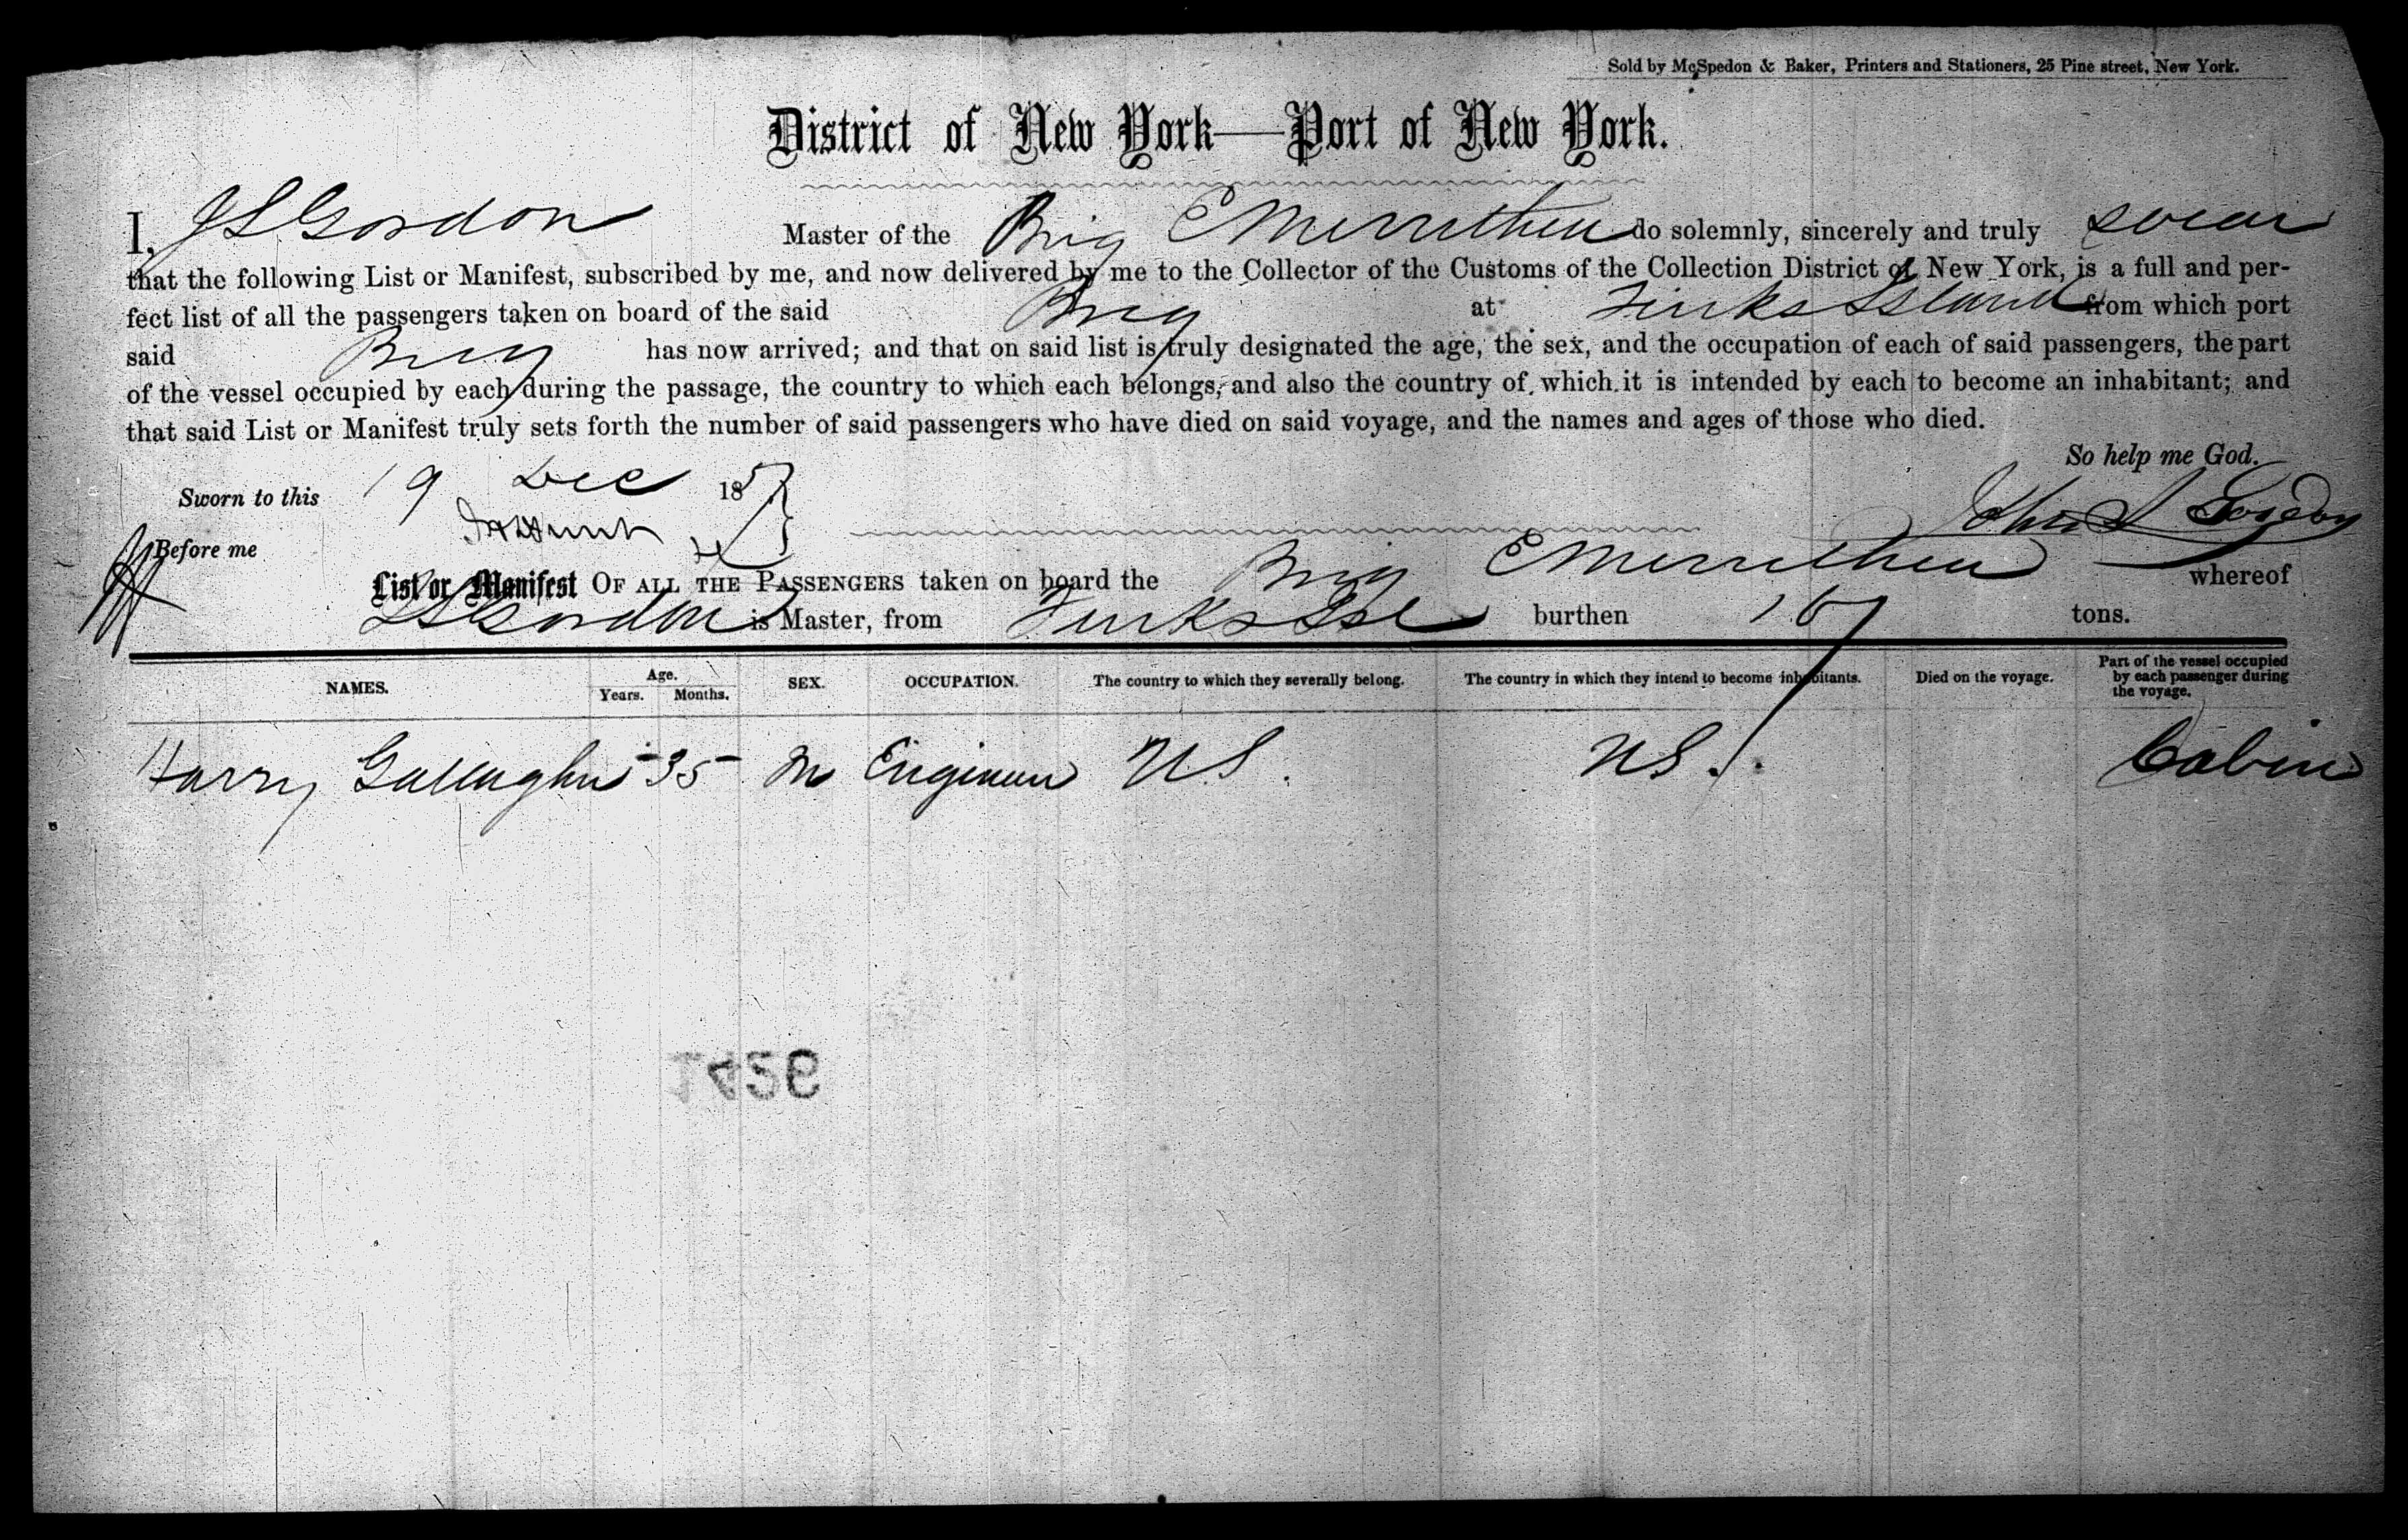 Sold by McSpedon & Baker, Printers and Stationers, 25 Pine street, New York.
District of New York—Port of New York.
I, J S Gordon Master of the Brig E Merrithew do solemnly, sincerely and truly swear
that the following List or Manifest, subscribed by me, and now delivered by me to the Collector of the Customs of the Collection District of New York, is a full and per-
fect list of all the passengers taken on board of the said Brig at Turks Island from which port
said Brig has now arrived; and that on said list is truly designated the age, the sex, and the occupation of each of said passengers, the part
of the vessel occupied by each during the passage, the country to which each belongs, and also the country of which it is intended by each to become an inhabitant; and
that said List or Manifest truly sets forth the number of said passengers who have died on said voyage, and the names and ages of those who died.
So help me God.
Sworn to this 19 Dec 185
John S Gordon
Before me
List or Manifest OF ALL THE PASSENGERS taken on board the Brig E Merrithew whereof
J S Gordon is Master, from Turks Isl burthen 167 tons.
NAMES. Age. Years. Months. SEX. OCCUPATION. The country to which they severally belong. The country in which they intend to become inhabitants. Died on the voyage. Part of the vessel occupied by each passenger during the voyage.
Harry Gallagher 35 M Engineer US. US. Cabin
1426